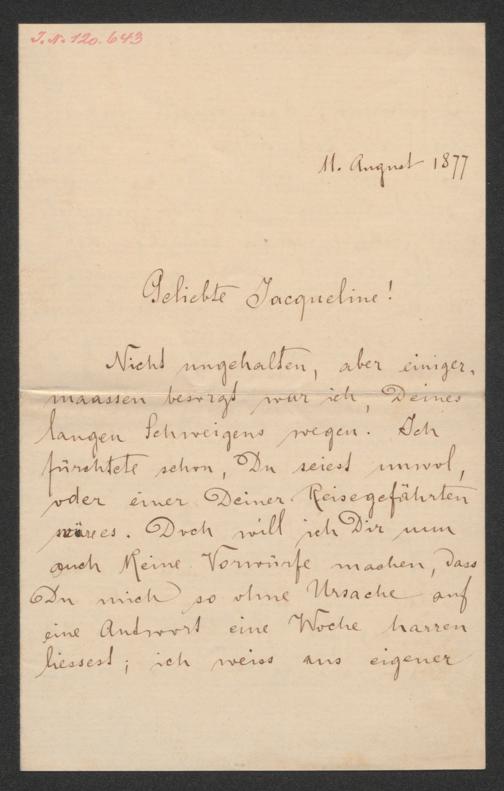 J.N. 120.643
11. August 1877
Geliebte Jacqueline!
Nicht ungehalten, aber einiger-
maassen besorgt war ich, Deines
langen Schweigens wegen. Ich
fürchtete schon, Du seiest unwol,
oder einer Deiner Reisegefährten
wäre es. Doch will ich Dir nun
auch keine Vorwürfe machen, dass
Du mich so ohne Ursache auf
eine Antwort eine Woche harren
liessest; ich weiss aus eigener